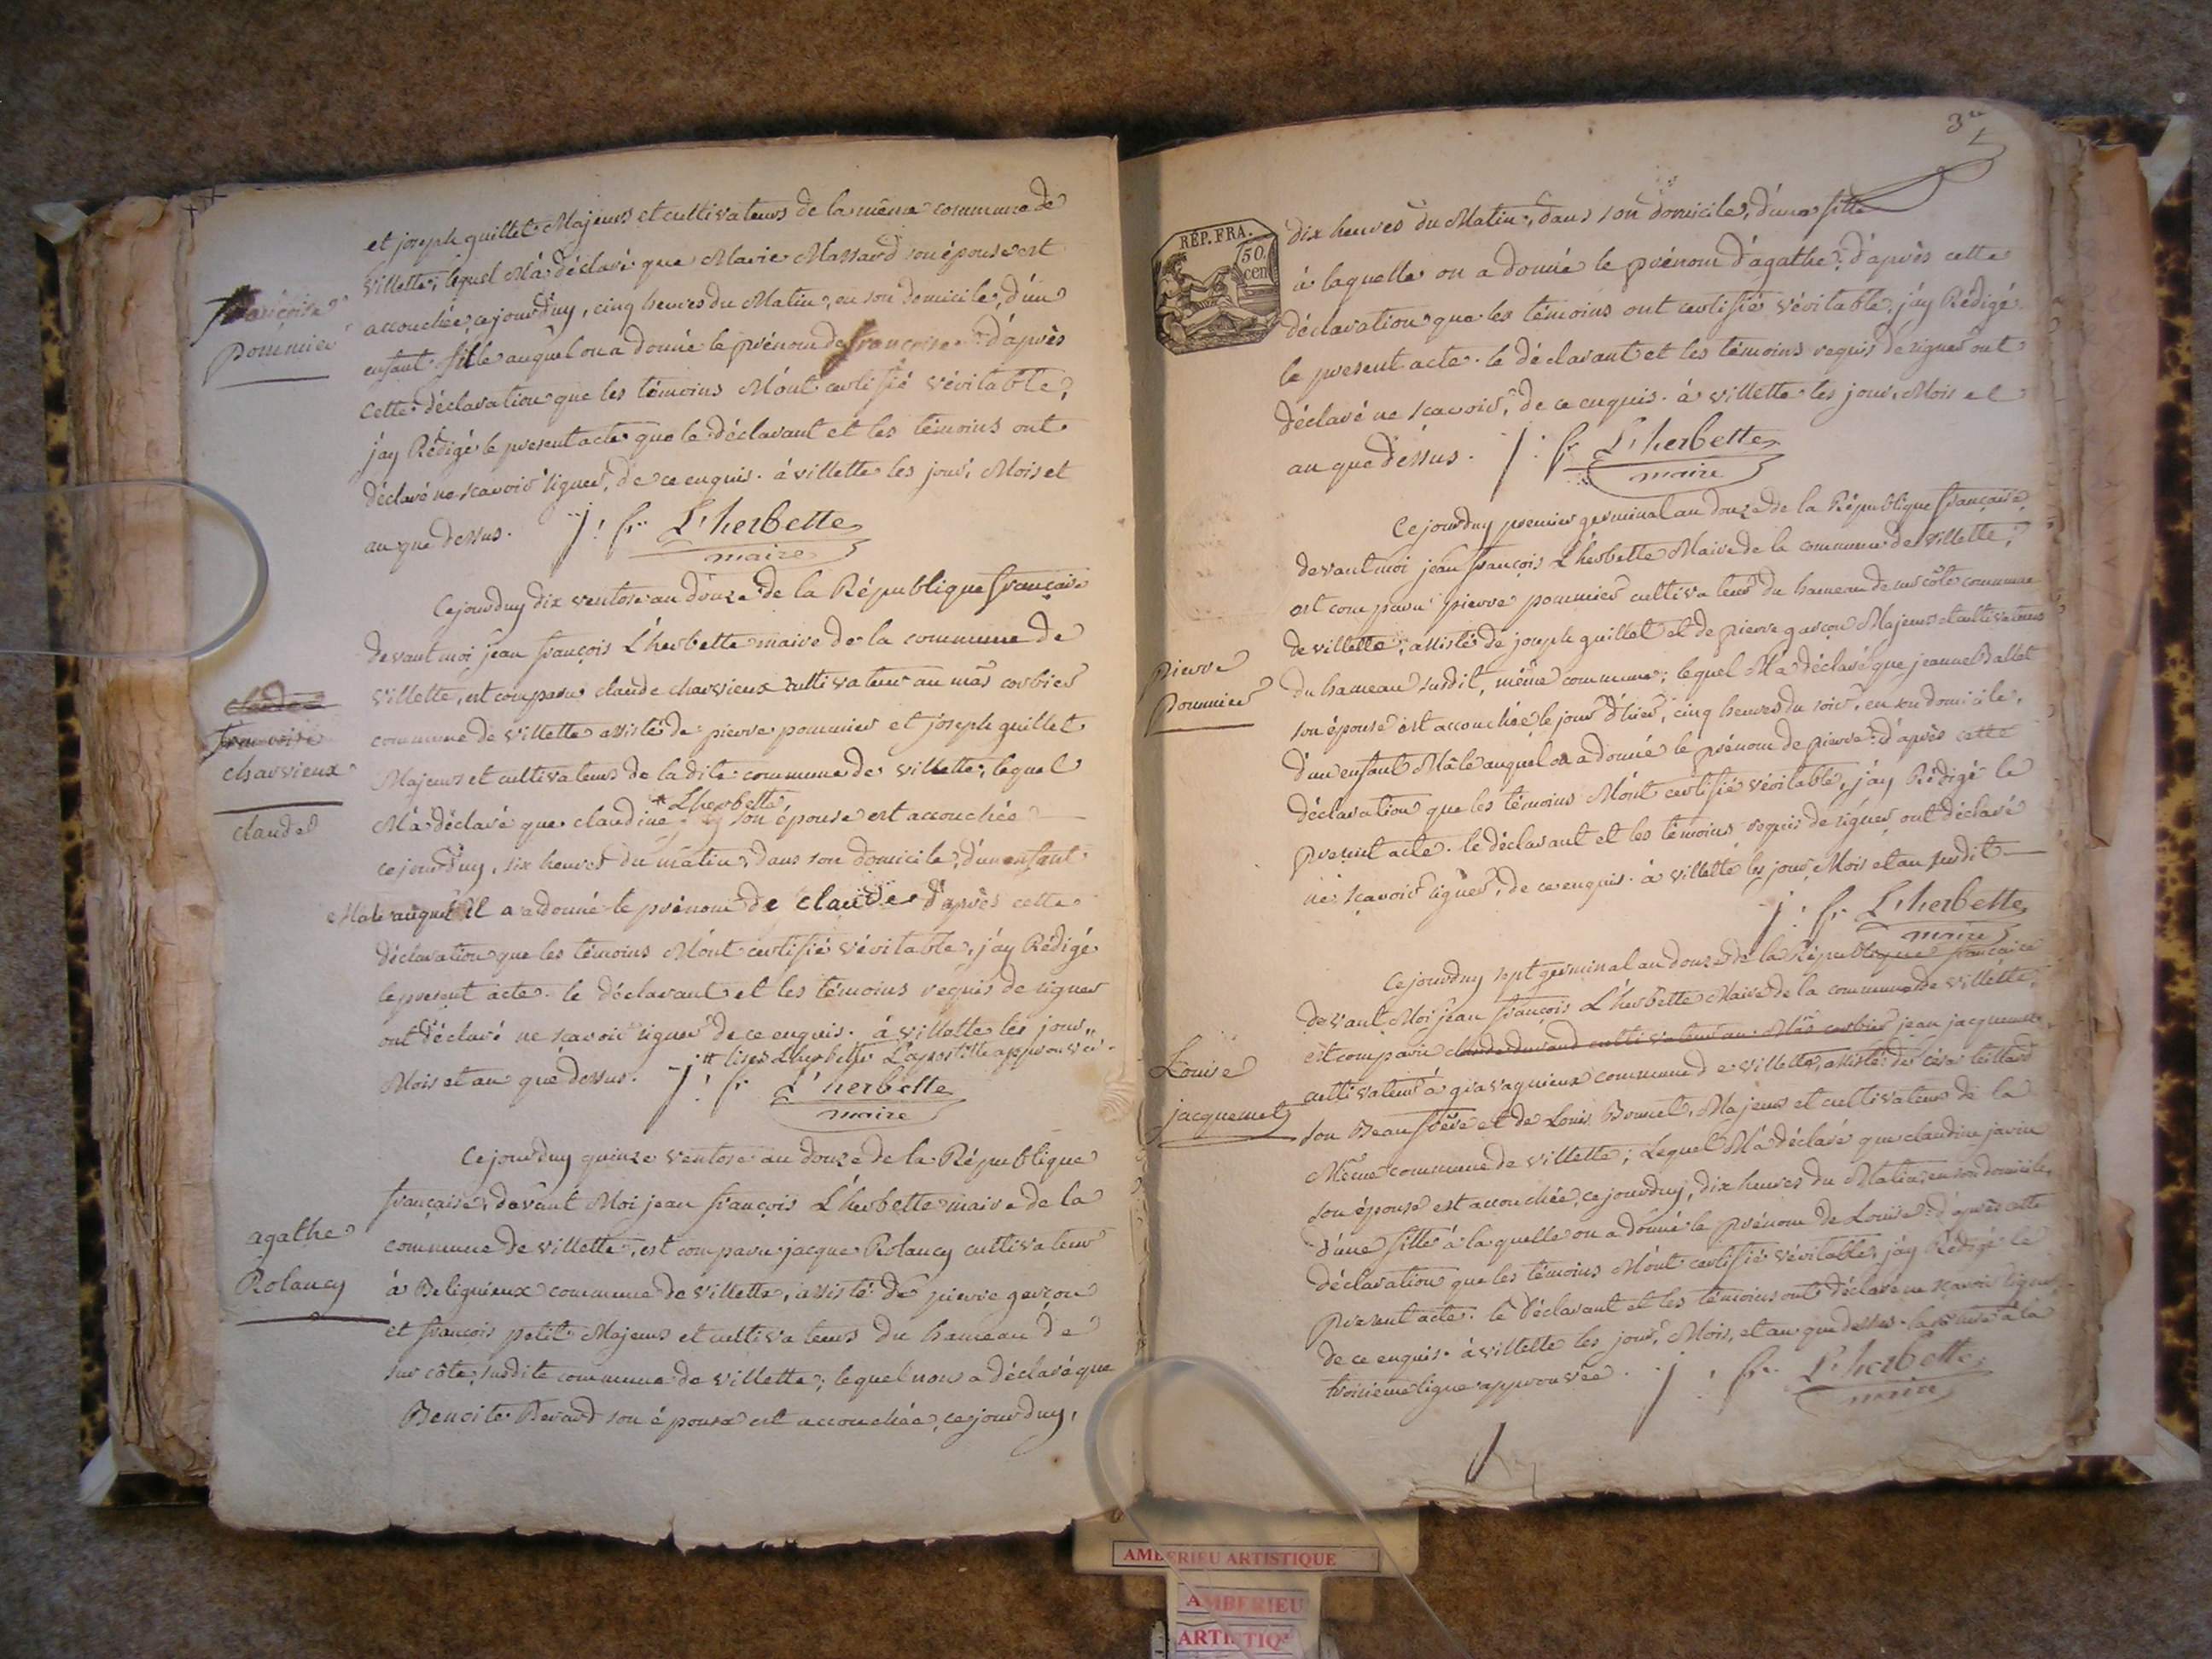 et joseph guillet Majeurs et cultivateurs de la même commune de
villette, lequel M'a déclaré que Marie Massard son épouse est
accouchée, cejourd'uy, cinq heures du Matin, en son domicile, d'un
enfant fille auquel on a donné le prénom de françoise. d'après
Cette déclaration que les témoins M'ont certifié véritable,
j'ay Rédigé le present acte que le déclarant et les témoins ont
déclaré ne scavoir signer, de ce enquis. à villette les jour, Mois et
an que dessus. j. fr. L'herbette
maire
françoise
pommier
Cejourduy dix ventose an douze de la République française
devant moi jean françois L'herbette maire de la commune de
villette, est comparu claude charvieux cultivateur au mas corbier
commune de villette assisté de pierre pommier et joseph guillet
Majeurs et cultivateurs de ladite commune de villette, lequel
* L'herbette
M'a déclaré que claudine son épouse est accouchée
cejourduy, six heures du matin, dans son domicile, d'un enfant
Male auquel il a donné le prénom de claude d'après cette
déclaration que les témoins M'ont certifié véritable, j'ay Rédigé
le present acte. le déclarant et les témoins requis de signer
ont déclaré ne scavoir signer de ce enquis. à villette les jour,
Mois et an que dessus. * lises L'herbette L'apostille approuvée.
j. fr. L'herbette
maire
claude
françoise
charvieux
claude
Cejourduy quinze ventose an douze de la République
française, devant Moi jean françois L'herbette maire de la
commune de villette, est comparu jacque Rolancy cultivateur
à Beligneux commune de villette, assisté de pierre garçon
et françois petit Majeurs et cultivateurs du hameau de
sur côte, susdite commune de villette; lequel nous a déclaré que
Benoite Berard son épouse est accouchée, cejourduy,
agathe
Rolancy
3e
RÉP. FRA.
50
cen
dix heures du Matin, dans son domicile, d'une fille
à laquelle on a donné le prénom d'agathe. d'après cette
déclaration que les témoins ont certifié véritable, j'ay Rédigé
le present acte. le déclarant et les témoins requis de signer ont
déclaré ne sçavoir, de ce enquis. à villette les jour, Mois et
an que dessus. j. fr. L'herbette
maire
Cejourduy premier germinal an douze de la République française,
devant moi jean françois L'herbette Maire de la commune de villette,
est comparu pierre pommier cultivateur du hameau de sur côte commune
de villette, assisté de joseph guillet et de pierre garçon Majeurs et cultivateurs
du hameau susdit, même commune; lequel M'a déclaré que jeanne Ballet
son épouse est accouchée le jour d'hier, cinq heures du soir, en son domicile,
d'un enfant Mâle auquel on a donné le prénom de pierre: d'après cette
déclaration que les témoins M'ont certifié véritable, j'ay Rédigé le
present acte. le déclarant et les témoins requis de signer, ont déclaré
ne sçavoir signer, de ce enquis. à villette les jour, Mois et an susdit
j. fr. L'herbette
maire
pierre
pommier
Cejourduy sept germinal an douze de la République française
devant Moi jean françois L'herbette Maire de la commune de villette,
est comparu claude durand cultivateur au Mas corbier jean jacquemet
cultivateur à gravagnieux commune de villette, assisté de césar tillard
son Beau frère et de Louis Brunet, Majeurs et cultivateurs de la
Même commune de villette; Lequel M'a déclaré que claudine javin
son épouse est accouchée, cejourduy, dix heures du Matin, en son domicile,
d'une fille à laquelle on a donné le prénom de Louise. d'après cette
déclaration que les témoins M'ont certifié véritable, j'ay Rédigé le
present acte. le déclarant et les témoins ont déclaré ne scavoir signer
de ce enquis. à villette les jour, Mois, et an que dessus. la rature à la
troisieme ligne approuvée. j. fr. L'herbette
maire
Louise
jacquemet
AMBERIEU ARTISTIQUE
AMBERIEU
ARTISTIQ